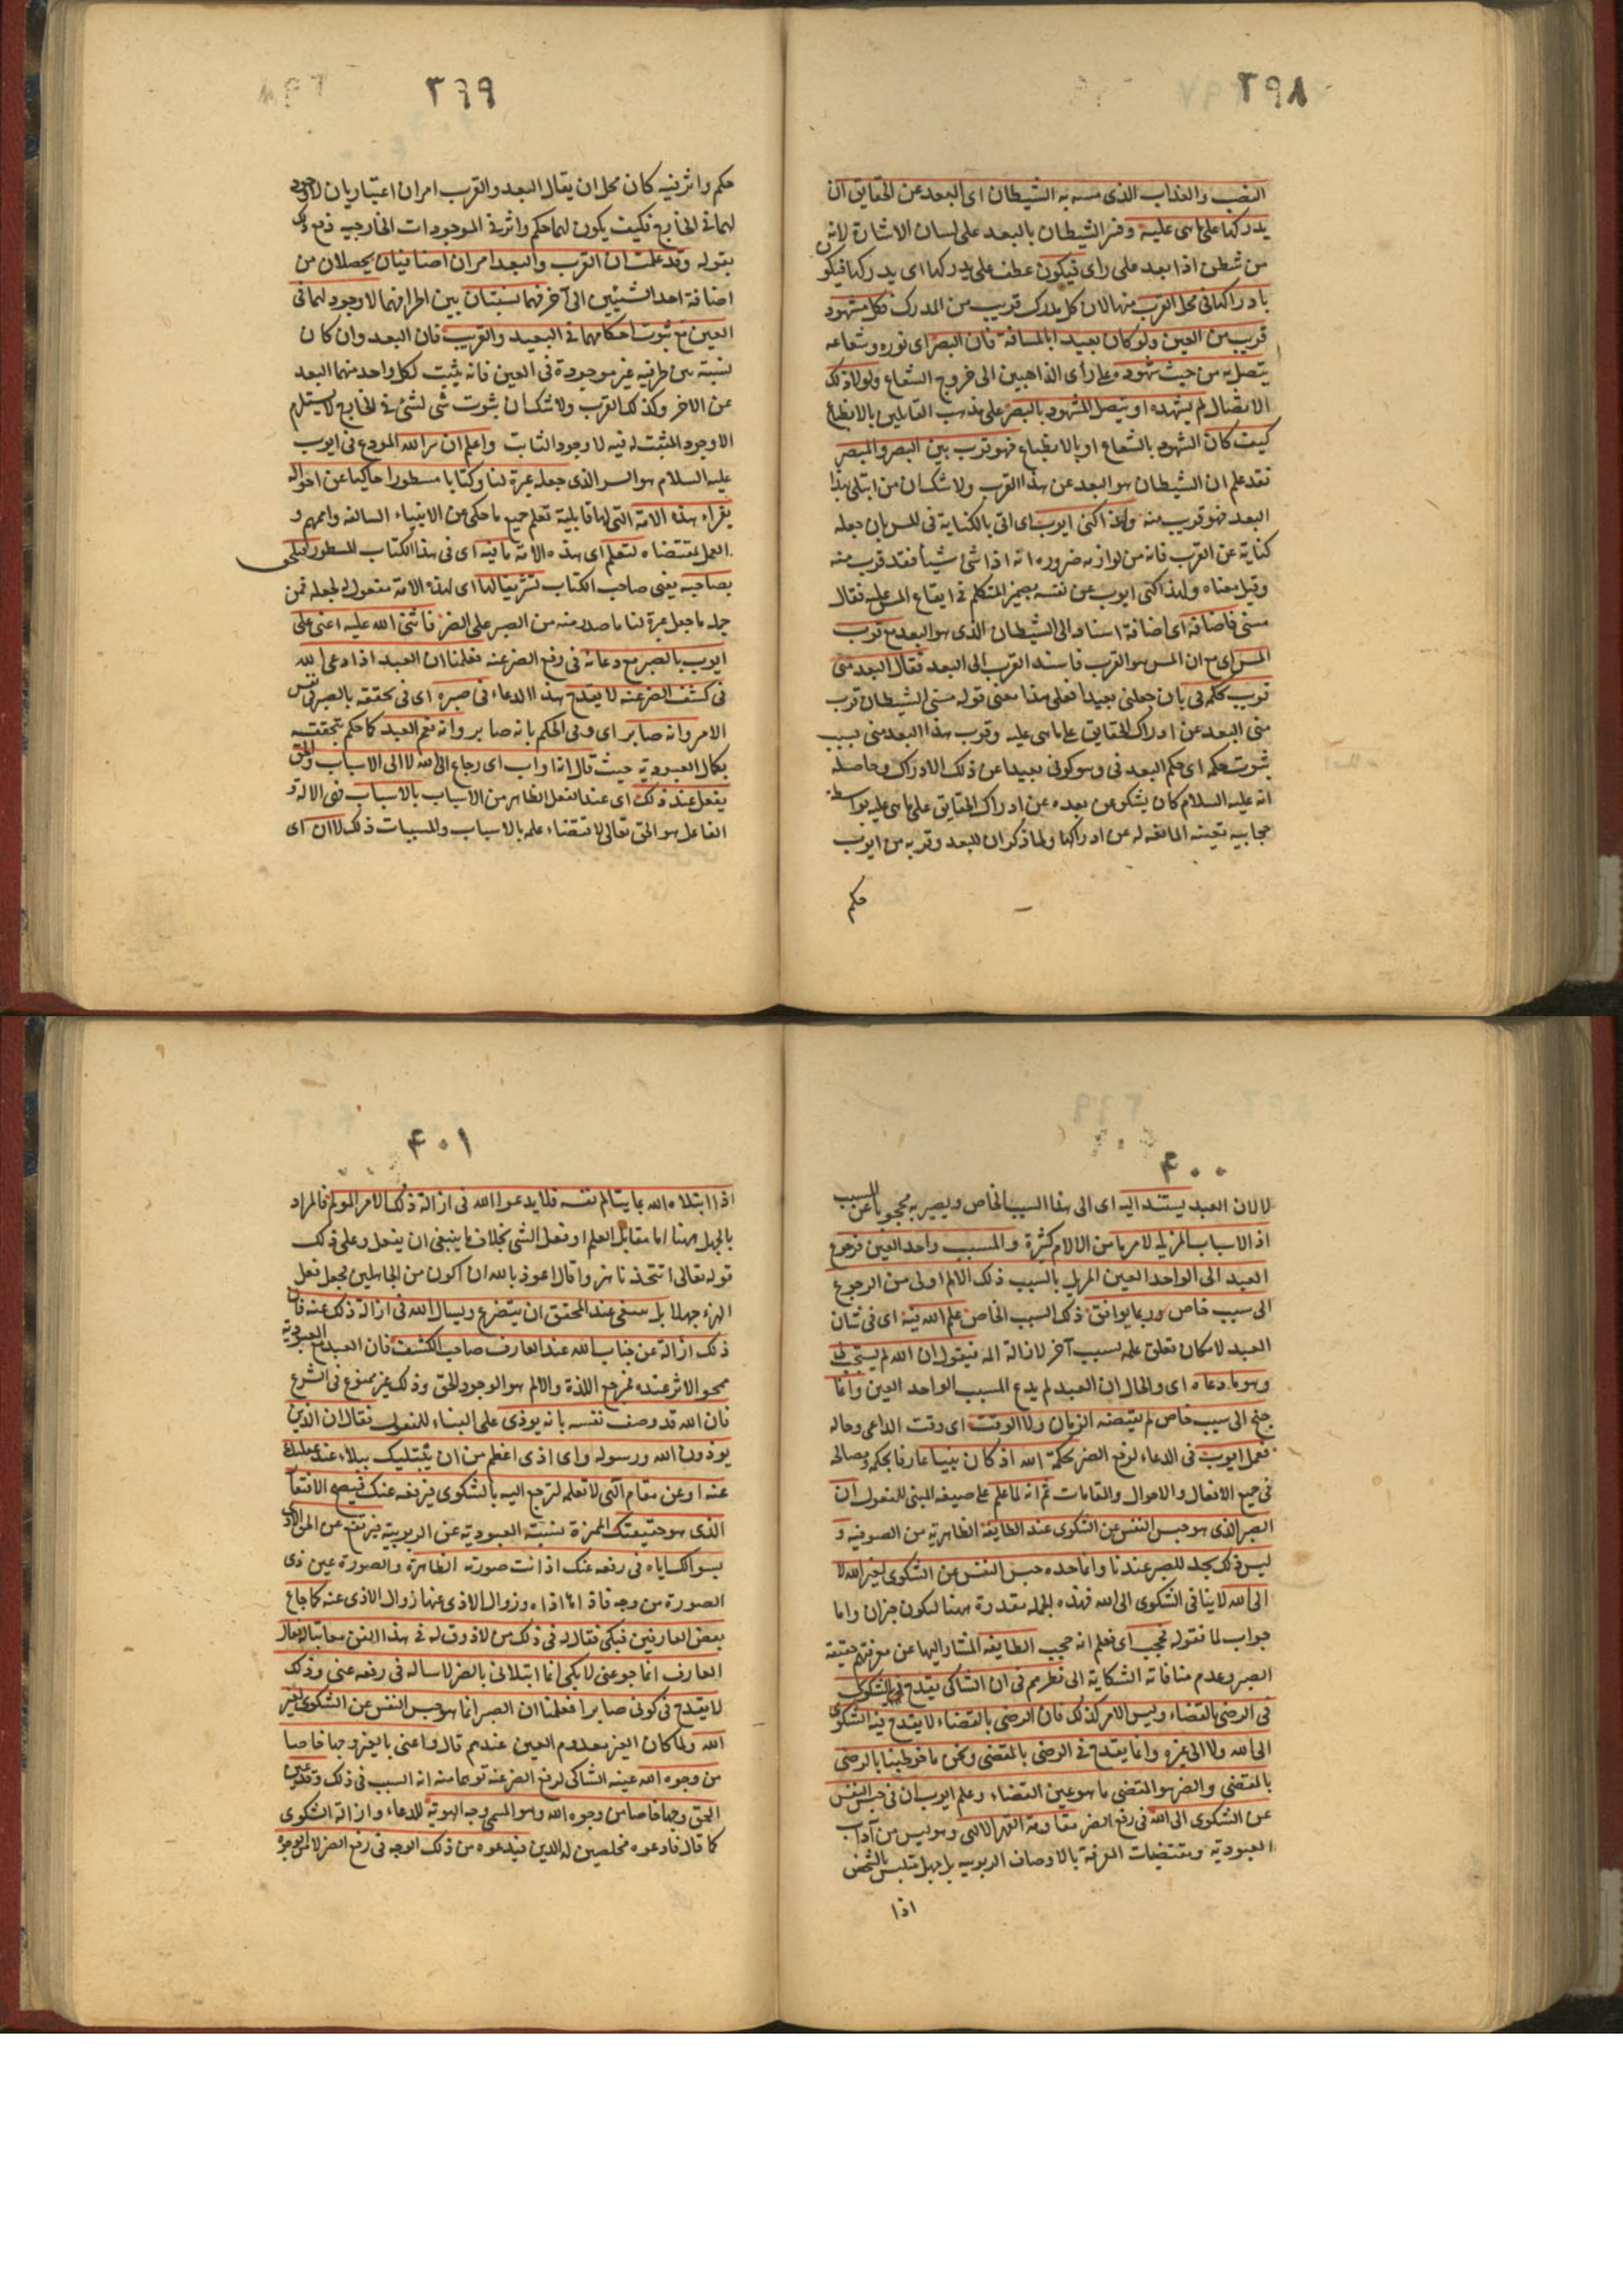 ٣٩٨
النصب والعذاب الذى مسه به الشيطان اى البعد عن الحقايق ان
يدركها على ما هى عليه وفسر الشيطان بالبعد على لسان الاشارة لانه
من شطن اذا بعد على راى فيكون عطف على يدركها اى يدركها فيكون
بادراكها فى محل القرب منها لان كل مدرك قريب من المدرك فكل مشهود
قريب من العين ولو كان بعيدا بالمسافة فان البصر اى نوره وشعاعه
يتصل به من حيث شهوده على رأى الذاهبين الى خروج الشعاع ولولا ذلك
الاتصال لم يشهده او يتصل المشهود بالبصر على مذهب القايلين بالانطباع
كيف كان الشهود بالشعاع او بالانطباع فهو قرب بين البصر والمبصر
فقد علم ان الشيطان هو البعد عن هذا القرب ولا شك ان من ابتلى بهذا
البعد فهو قريب منه ولهذا كنى ايوب اى اتى بالكناية فى المس بان جعله
كناية عن القرب فانه من لوازمه ضرورة انه اذا مس شئ شيأ فقد قرب منه
وقيل معناه ولهذا كنى ايوب عن نفسه بضمير المتكلم فى ايقاع المس عليه فقال
مسنى فاضافه اى اضافة اسناد الى الشيطان الذى هو البعد مع قرب
المس اى مع ان المس هو القرب فاسند القرب الى البعد فقال البعد منى
قريب لحكمه فى بان جعلنى بعيدا فعلى هذا معنى قوله مسنى الشيطان قرب
منى البعد عن ادراك الحقايق على ما هى عليه وقرب هذا البعد منى بسبب
ثبوت حكمه اى حكم البعد فى وهو كونى بعيدا عن ذلك الادراك وحاصله
انه عليه السلام كان يشكو عن بعده عن ادراك الحقايق على ما هى عليه بواسطة
حجابية تعينه المانعة له عن ادراكها ولما ذكر ان للبعد وقربه من ايوب
حكم
٣٩٩
حكم واثر فيه كان محل ان يقال البعد والقرب امران اعتباريان لا وجود
لهما فى الخارج فكيف يكون لهما حكم واثر فى الموجودات الخارجيه فدفع ذلك
بقوله وقد علمت ان القرب والبعد امران اضافيان يحصلان من
اضافة احد الشيئين الى آخر فهما نسبتان بين اطرافهما لا وجود لهما فى
العين مع ثبوت احكامهما فى البعيد والقريب فان البعد وان كان
نسبة بين طرفيه غير موجودة فى العين فانه يثبت لكل واحد منهما البعد
عن الاخر وكذلك القرب ولا شك ان ثبوت شى لشئ فى الخارج لا يستلزم
الا وجود المثبت له فيه لا وجود الثابت واعلم ان سر الله المودع فى ايوب
عليه السلام هو السر الذى جعله عبرة لنا وكتابا مسطورا حاكيا عن احواله
يقراءه هذه الامة التى لها قابلية تعلم جميع ما حكى عن الانبياء السالفه واممهم و
العمل بمقتضاه لتعلم اى هذه الامة ما فيه اى فى هذا الكتاب المسطور فتلحق
بصاحبه يعنى صاحب الكتاب تشريفا لها اى لهذه الامة مفعول له لجعله فمن
جملة ما جعل عبرة لنا ما صدر منه من الصبر على الضر فاثنى الله عليه اعنى على
ايوب بالصبر مع دعائه فى رفع الضر عنه فعلمنا ان العبد اذا دعى الله
فى كشف الضر عنه لا يقدح هذا الدعاء فى صبره اى فى تحققه بالصبر فى نفس
الامر وانه صابر اى وفى الحكم بانه صابر وانه نعم العبد كما حكم بتحققه
بكمال العبودية حيث قال انه اواب اى رجاع الى الله لا الى الاسباب والحق
يفعل عند ذلك اى عند الفعل الظاهر من الاسباب بالاسباب فهى الالة و
الفاعل هو الحق تعالى لاقتضاء علمه بالاسباب والمسببات ذلك لا ان اى
٤٠٠
لا لان العبد يستند اليه اى الى هذا السبب الخاص ويصير به محجوبا عن المسبب
اذ الاسباب المزيلة لامر ما من الالام كثيرة والمسبب واحد العين فرجوع
العبد الى الواحد العين المزيل بالسبب ذلك الالم اولى من الرجوع
الى سبب خاص وربما يوافق ذلك السبب الخاص علم الله فيه اى فى شان
العبد لامكان تعلق علمه بسبب آخر لازالة المه فيقول ان الله لم يستجب لى
وهو ما دعاه اى والحال ان العبد لم يدع المسبب الواحد العين وانما
جنح الى سبب خاص لم يقتضه الزمان ولا الوقت اى وقت الداعى وحاله
فعمل ايوب فى الدعاء لرفع الضر بحكمة الله اذ كان نبيا عارفا بحكمه ومصالحه
فى جميع الافعال والاحوال والمقامات ثم انه لما علم على صيغه المبنى للمفعول ان
الصبر الذى هو حبس النفس عن الشكوى عند الطايفة الظاهرية من الصوفيه و
ليس ذلك بحد للصبر عندنا وانما حده حبس النفس عن الشكوى لغير الله لا
الى الله لا ينافى الشكوى الى الله فهذه الجمله مقدرة ههنا لتكون جزان واما
جواب لما فقوله فحجب اى فعلم انه حجب الطايفه المشار اليها عن معرفتهم حقيقة
الصبر وعدم منافاته الشكاية الى نظرهم فى ان الشاكى يقدح فى الشكوى
فى الرضى بالقضاء وليس الامر كذلك فان الرضى بالقضاء لا يقدح فيه الشكوى
الى الله ولا الى غيره وانما يقدح فى الرضى بالمقضى ونحن ما خوطبنا بالرضى
بالمقضى والضر هو المقضى ما هو عين القضاء وعلم ايوب ان فى حبس النفس
عن الشكوى الى الله فى رفع الضر مقاومة القهر الالهى وهو ليس من آداب
العبودية ومقتضيات المعرفة بالاوصاف الربوبيه بل جهل متلبس بالشخص
اذا
٤٠١
اذا ابتلاه الله بما يتالم نفسه فلا يدعوا الله فى ازالة ذلك الامر المولم فالمراد
بالجهل ههنا اما مقابل العلم او فعل الشى بخلاف ما ينبغى ان يفعل وعلى ذلك
قوله تعالى اتتخذنا هزوا قال اعوذ بالله ان اكون من الجاهلين فجعل فعل
الهزء جهلا بل ينبغى عند المحقق ان يتضرع ويسال الله فى ازالة ذلك عنه فان
ذلك ازالة عن جناب الله عند العارف صاحب الكشف فان العبد مع العبودية
ممحو الاثر عنده فمرجع اللذة والالم هو الوجود الحق وذلك غير ممنوع فى الشرع
فان الله قد وصف نفسه بانه يوذى على البناء للمفعول فقال ان الذين
يوذون الله ورسوله واى اذى اعظم من ان يبتليك ببلاء عند غفلتك
عنه او عن مقام الهى لا تعلمه لترجع اليه بالشكوى فيرفعه عنك فيصح الافتقار
الذى هو حقيقتك المميزة بنسبة العبودية عن الربوبية فيرتفع عن الحق الاذى
بسوالك اياه فى رفعه عنك اذ انت صورته الظاهرة والصورة عين ذى
الصورة من وجه فاذاها اذاه وزوال الاذى عنها زوال الاذى عنه كما جاع
بعض العارفين فبكى فقال له فى ذلك من لا ذوق له فى هذا الفن معاتبا له فقال
العارف انما جوعنى لابكى انما ابتلانى بالضر لاساله فى رفعه عنى وذلك
لا يقدح فى كونى صابرا فعلمنا ان الصبر انما هو حبس النفس عن الشكوى لغير
الله ولما كان الغير معدوم العين عندهم قال واعنى بالغير وجها خاصا
من وجوه الله عينه الشاكى لرفع الضر عنه توهما منه انه السبب فى ذلك وقد عين
الحق وجها خاصا من وجوه الله وهو المسمى وجه الهوية للدعاء وازالة الشكوى
كما قال فادعوه مخلصين له الدين فيدعوه من ذلك الوجه فى رفع الضر لا من الوجوه